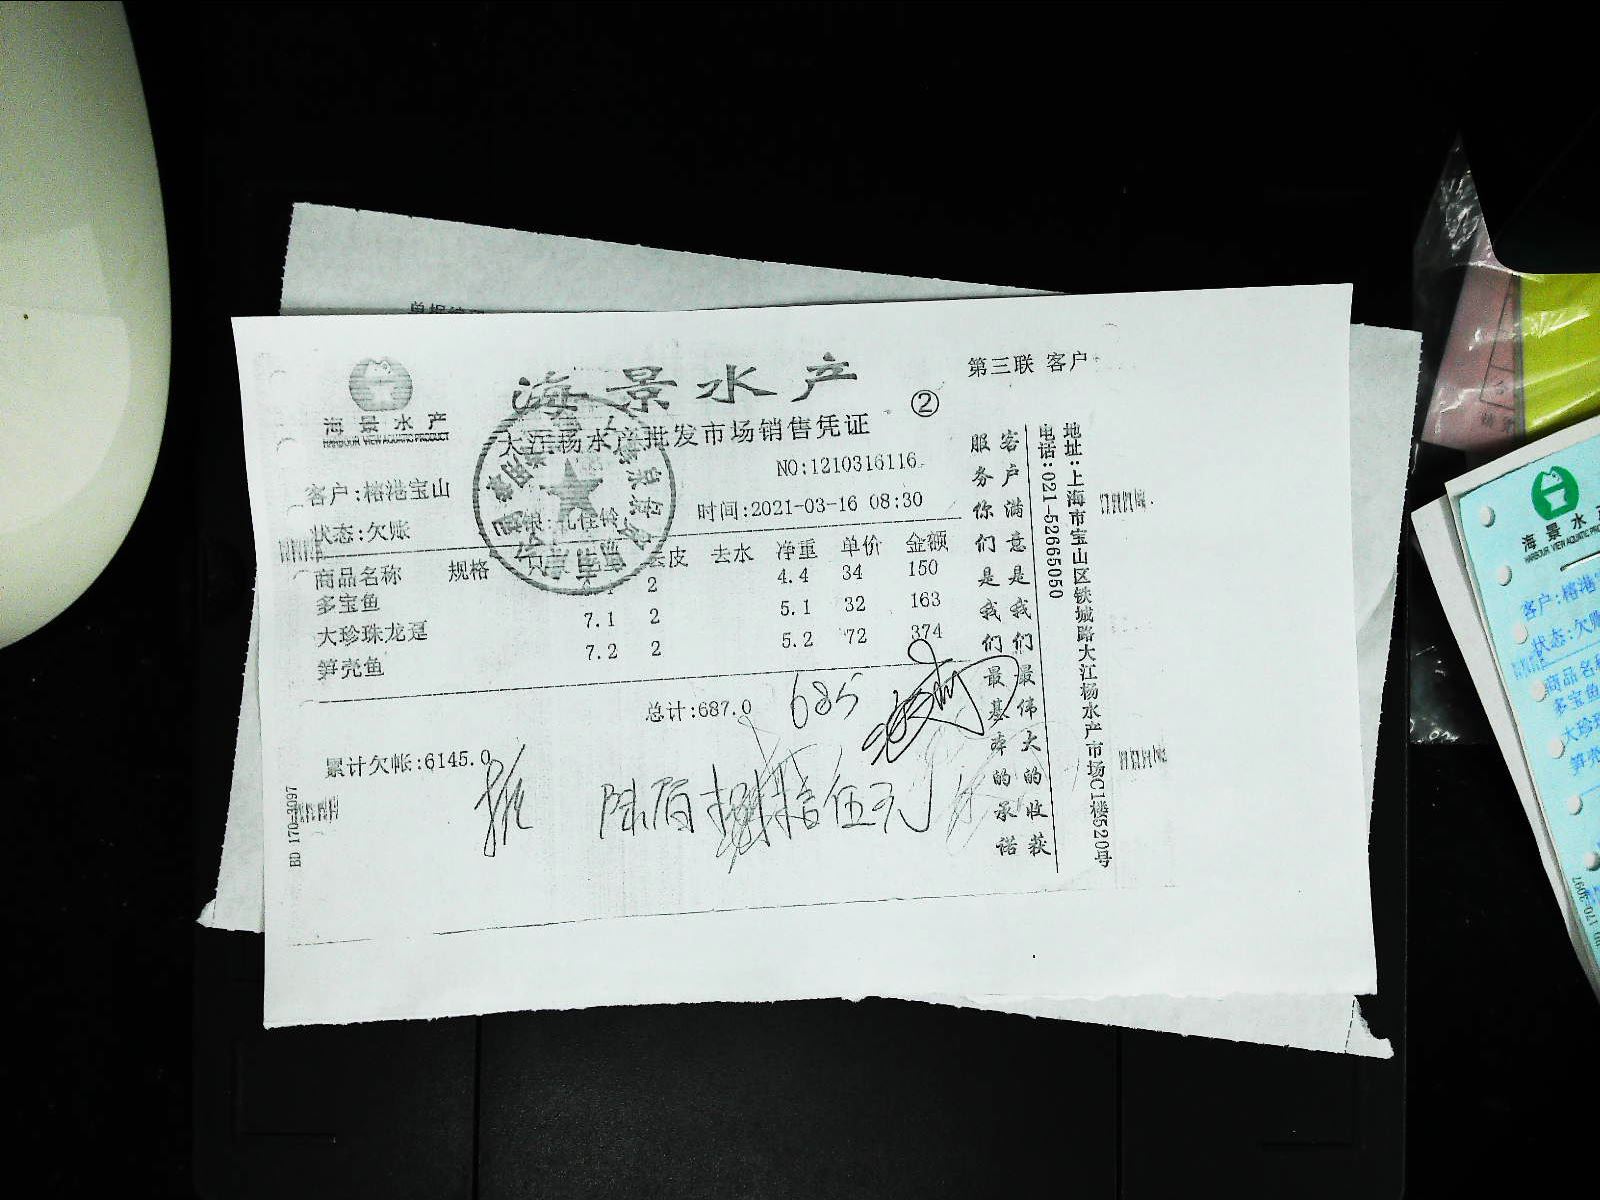 单据编号
海景水产
HARBOUR VIEW AQUATIC PRODUCT
海景水产
②
第三联 客户
大江杨水产批发市场销售凭证
NO:1210316116
客户:榕港宝山
时间:2021-03-16 08:30
状态:欠账
商品名称 规格 去皮 去水 净重 单价 金额
多宝鱼 2 4.4 34 150
大珍珠龙趸 7.1 2 5.1 32 163
笋壳鱼 7.2 2 5.2 72 374
总计:687.0 685
累计欠帐:6145.0
陆佰捌拾伍元
客户满意是我们最伟大的收获
服务你们是我们最基本的承诺
地址:上海市宝山区铁城路大江杨水产市场C1楼520号
电话:021-52665050
BD 170-3097
海景水产
HARBOUR VIEW AQUATIC PRO
客户:榕港
状态:欠账
商品名称
多宝鱼
大珍珠
笋壳
BD 170-3097